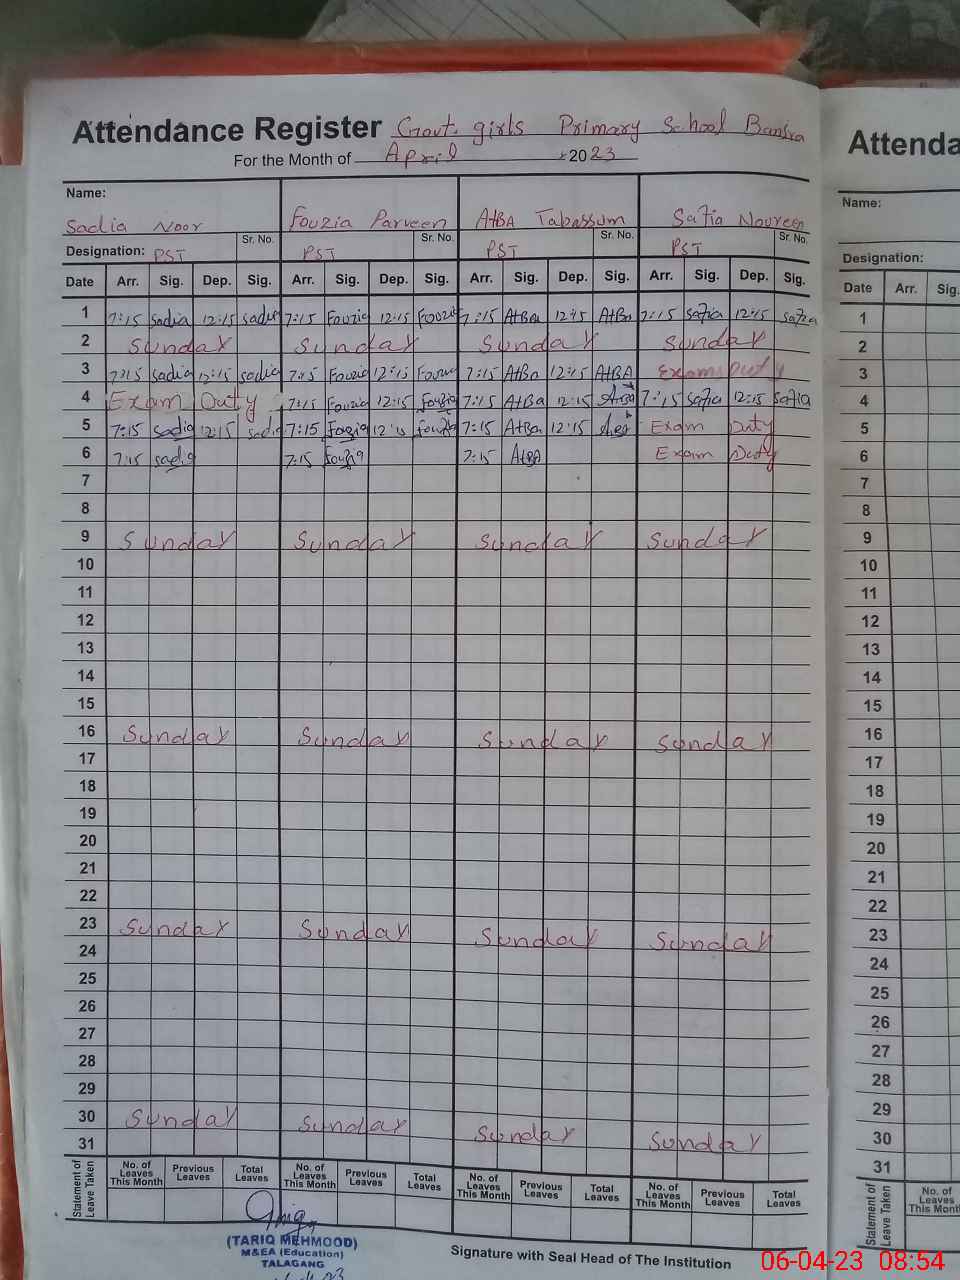 Attendance Register Govt. girls Primary School
For the Month of April 2023
Name:
Sadia Noor Fouzia Parveen AtBA Tabassum Safia Noureen
Designation: PST Sr. No. PST Sr. No. PST Sr. No. PST Sr. No.
Date Arr. Sig. Dep. Sig. Arr. Sig. Dep. Sig. Arr. Sig. Dep. Sig. Arr. Sig. Dep. Sig.
1 7:15 Sadia 12:15 Sadia 7:15 Fouzia 12:15 Fouzia 7:15 AtBA 12:15 AtBA 7:15 Safia 12:15 Safia
2 Sunday Sunday Sunday Sunday
3 7:15 Sadia 12:15 Sadia 7:15 Fouzia 12:15 Fouzia 7:15 AtBA 12:15 AtBA Exam Duty
4 Exam Duty 7:15 Fouzia 12:15 Fouzia 7:15 AtBA 12:15 AtBA 7:15 Safia 12:15 Safia
5 7:15 Sadia 12:15 Sadia 7:15 Fouzia 12:15 Fouzia 7:15 AtBA 12:15 Exam Duty
6 7:15 Sadia 7:15 Fouzia 7:15 AtBA Exam Duty
7
8
9 Sunday Sunday Sunday Sunday
10
11
12
13
14
15
16 Sunday Sunday Sunday Sunday
17
18
19
20
21
22
23 Sunday Sunday Sunday Sunday
24
25
26
27
28
29
30 Sunday Sunday Sunday Sunday
31
Statement of Leave Taken
No. of Leaves This Month Previous Leaves Total Leaves No. of Leaves This Month Previous Leaves Total Leaves No. of Leaves This Month Previous Leaves Total Leaves No. of Leaves This Month Previous Leaves Total Leaves
(TARIQ MEHMOOD)
M&EA (Education)
TALAGANG
Signature with Seal Head of The Institution
06-04-23 08:54
Attenda
Name:
Designation:
Date Arr. Sig.
1
2
3
4
5
6
7
8
9
10
11
12
13
14
15
16
17
18
19
20
21
22
23
24
25
26
27
28
29
30
31
Statement of Leave Taken
No. of Leaves This Month